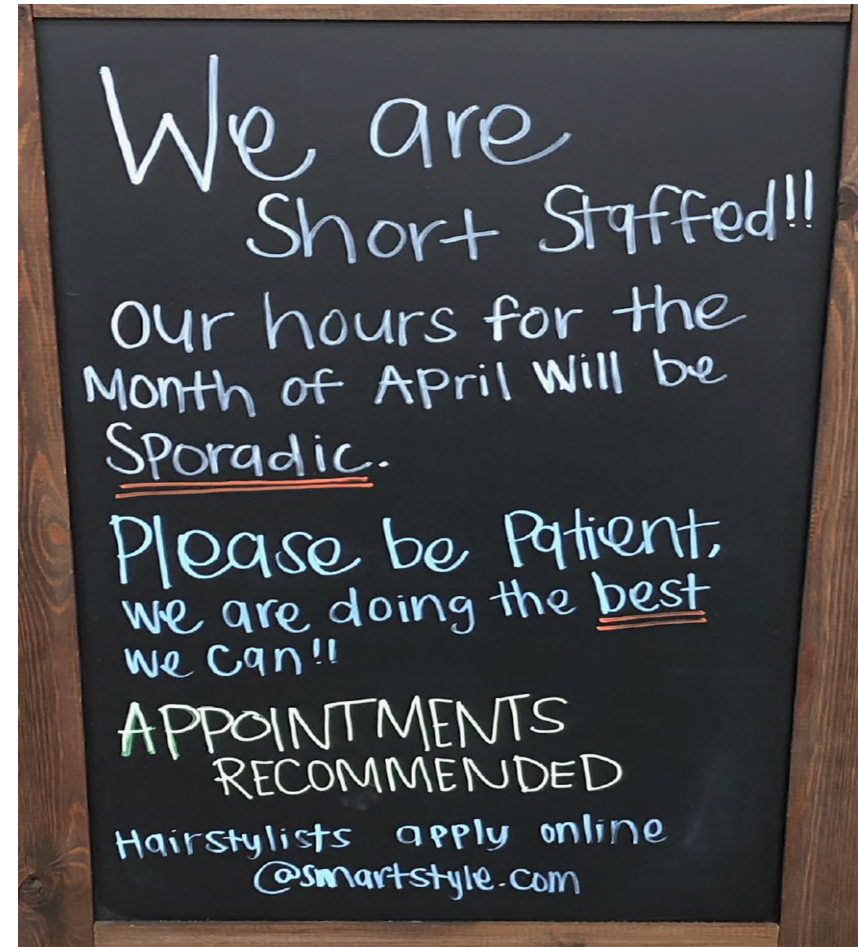 We are
Short Staffed!!
our hours for the
Month of April Will be
Sporadic.
Please be Patient,
we are doing the best
we can!!
APPOINTMENTS
RECOMMENDED
Hairstylists apply online
@smartstyle.com